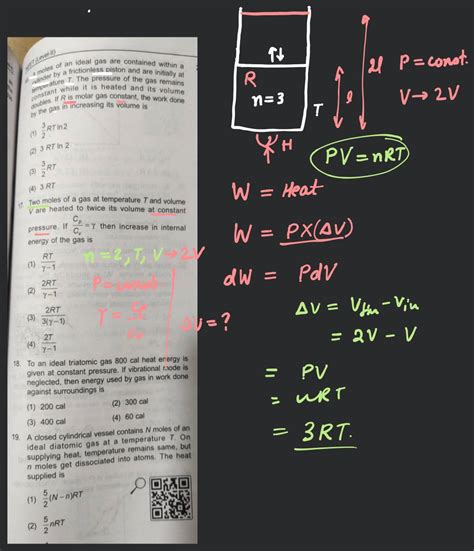 NEET (Level-II)
moles of an ideal gas are contained within a
cylinder by a frictionless piston and are initially at
temperature T. The pressure of the gas remains
constant while it is heated and its volume
doubles. If R is molar gas constant, the work done
by the gas in increasing its volume is
(1) 3/2 RT ln2
(2) 3 RT ln 2
(3) 3/2 RT
(4) 3 RT
17. Two moles of a gas at temperature T and volume
V are heated to twice its volume at constant
pressure. If Cp/Cv = γ then increase in internal
energy of the gas is
(1) RT/γ–1
(2) 2RT/γ–1
(3) 2RT/3(γ–1)
(4) 2T/γ–1
18. To an ideal triatomic gas 800 cal heat energy is
given at constant pressure. If vibrational mode is
neglected, then energy used by gas in work done
against surroundings is
(1) 200 cal (2) 300 cal
(3) 400 cal (4) 60 cal
19. A closed cylindrical vessel contains N moles of an
ideal diatomic gas at a temperature T. On
supplying heat, temperature remains same, but
n moles get dissociated into atoms. The heat
supplied is
(1) 5/2 (N – n)RT
(2) 5/2 nRT
n = 2, T, V → 2V
P = const
γ = Cp/Cv
ΔU = ?
R
n = 3
T
H
l
2l
P = const.
V → 2V
PV = nRT
W = Heat
W = P×(ΔV)
dW = PdV
ΔV = Vfin – Vin
= 2V – V
= PV
= nRT
= 3RT.